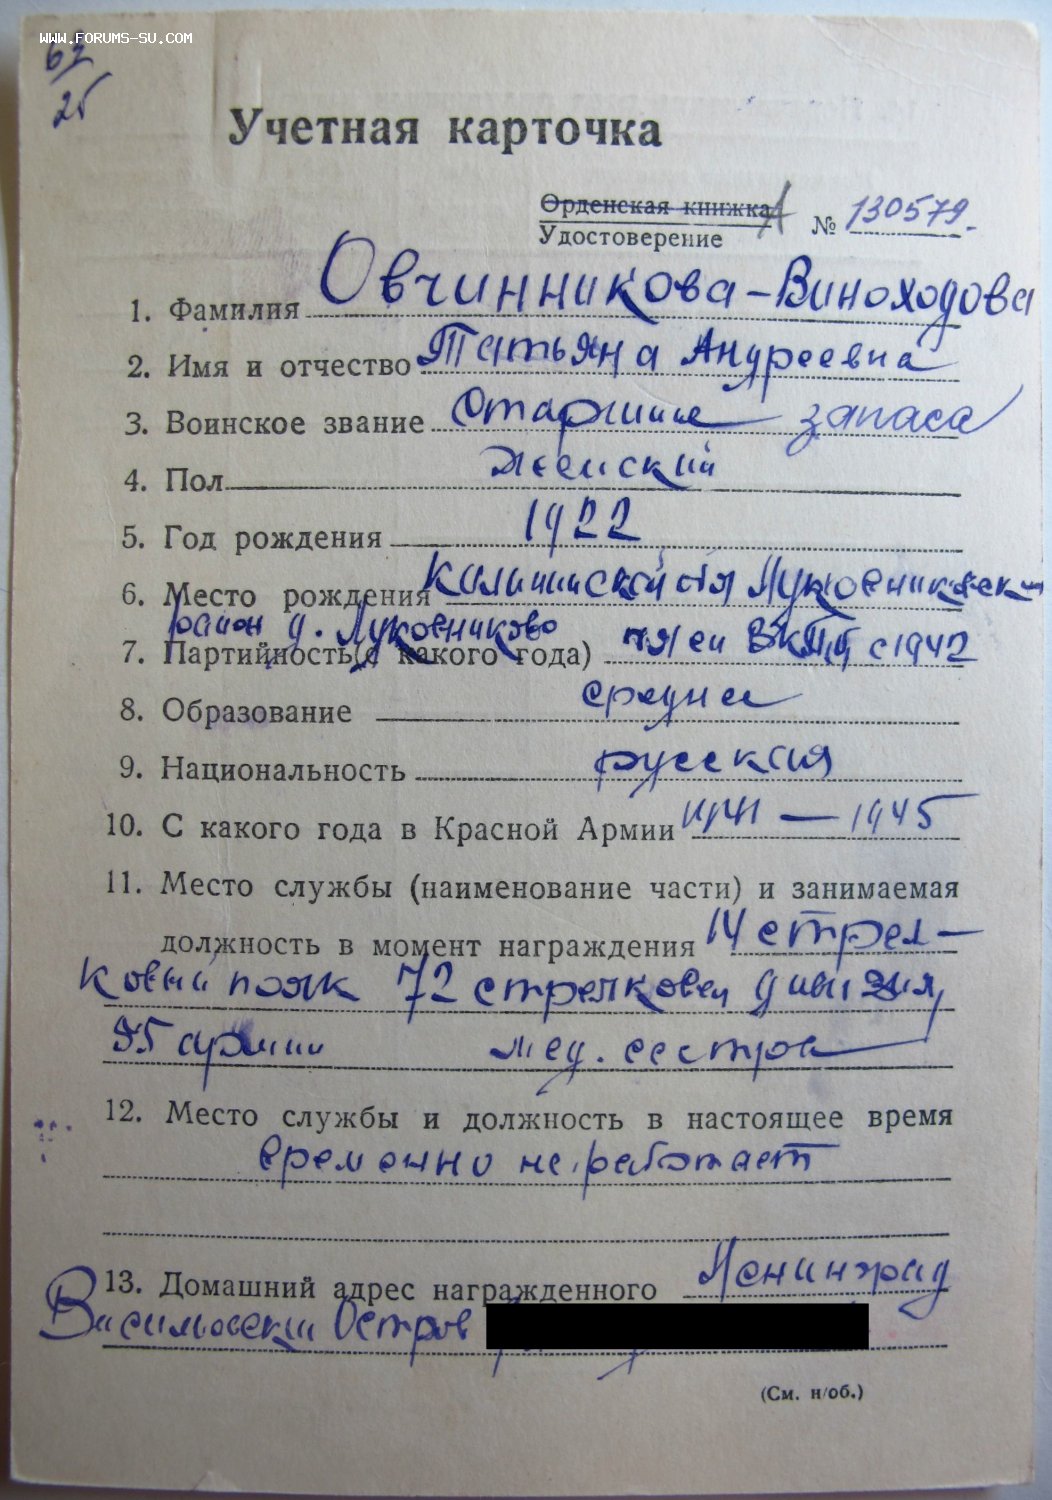 www.forums-su.com
62
25
Учетная карточка
Орденская книжка А
Удостоверение № 130579.
1. Фамилия Овчинникова-Виноходова
2. Имя и отчество Татьяна Андреевна
3. Воинское звание Старшина запаса
4. Пол Женский
5. Год рождения 1922
6. Место рождения Калининской обл Луковниковск
район д. Луковниково
7. Партийность (с какого года) член ВКПб с 1942
8. Образование среднее
9. Национальность русская
10. С какого года в Красной Армии 1941 — 1945
11. Место службы (наименование части) и занимаемая
должность в момент награждения 14 стрел-
ковый полк 72 стрелковая дивизия,
55 армии мед. сестра
12. Место службы и должность в настоящее время
временно не работает
13. Домашний адрес награжденного Ленинград
Васильевский Остров
(См. н/об.)